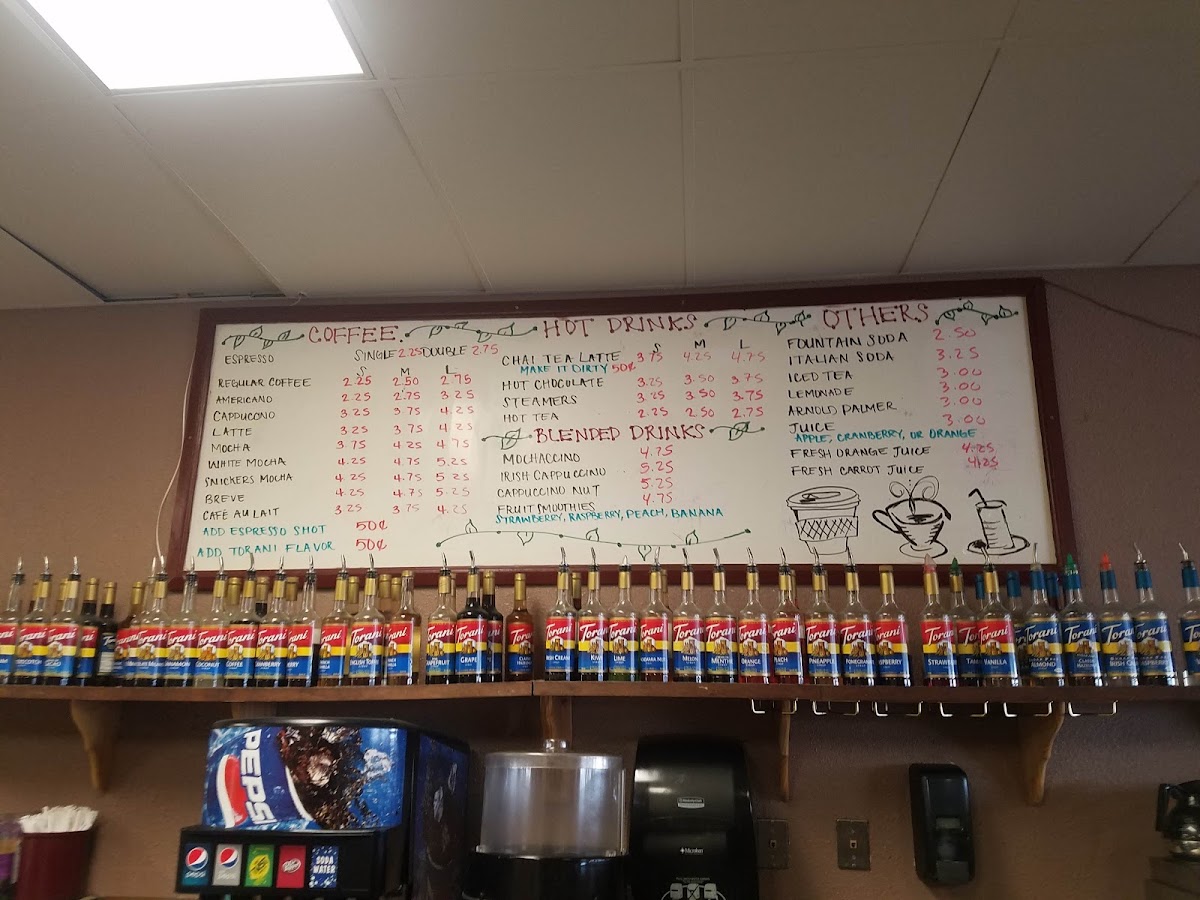 COFFEE
ESPRESSO SINGLE 2.25 DOUBLE 2.75
S M L
REGULAR COFFEE 2.25 2.50 2.75
AMERICANO 2.25 2.75 3.25
CAPPUCCINO 3.25 3.75 4.25
LATTE 3.25 3.75 4.25
MOCHA 3.75 4.25 4.75
WHITE MOCHA 4.25 4.75 5.25
SNICKERS MOCHA 4.25 4.75 5.25
BREVE 4.25 4.75 5.25
CAFÉ AU LAIT 3.25 3.75 4.25
ADD ESPRESSO SHOT 50¢
ADD TORANI FLAVOR 50¢
HOT DRINKS
S M L
CHAI TEA LATTE 3.75 4.25 4.75
MAKE IT DIRTY 50¢
HOT CHOCOLATE 3.25 3.50 3.75
STEAMERS 3.25 3.50 3.75
HOT TEA 2.25 2.50 2.75
BLENDED DRINKS
MOCHACCINO 4.75
IRISH CAPPUCCINO 5.25
CAPPUCCINO NUT 5.25
FRUIT SMOOTHIES 4.75
STRAWBERRY, RASPBERRY, PEACH, BANANA
OTHERS
FOUNTAIN SODA 2.50
ITALIAN SODA 3.25
ICED TEA 3.00
LEMONADE 3.00
ARNOLD PALMER 3.00
JUICE 3.00
APPLE, CRANBERRY, OR ORANGE
FRESH ORANGE JUICE 4.25
FRESH CARROT JUICE 4.25
Torani COCONUT
Torani COFFEE
Torani ENGLISH TOFFEE
Torani GRAPE
Torani LIME
Torani MELON
Torani VANILLA
PEPSI
pepsi
pepsi
Dr Pepper
SODA WATER